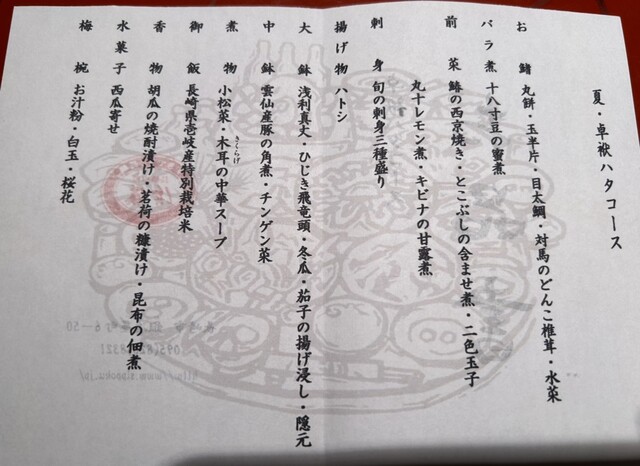 夏・卓袱ハタコース
お鰭 丸餅・玉半片・目太鯛・対馬のどんこ椎茸・水菜
バラ煮 十八寸豆の蜜煮
前菜 鰆の西京焼き・とこぶしの含ませ煮・二色玉子
丸十レモン煮・キビナの甘露煮
刺身 旬の刺身三種盛り
揚げ物 ハトシ
大鉢 浅利真丈・ひじき飛竜頭・冬瓜・茄子の揚げ浸し・隠元
中鉢 雲仙産豚の角煮・チンゲン菜
煮物 小松菜・木耳の中華スープ
きくらげ
御飯 長崎県壱岐産特別栽培米
香物 胡瓜の焼酎漬け・茗荷の糠漬け・昆布の佃煮
水菓子 西瓜寄せ
梅椀 お汁粉・白玉・桜花